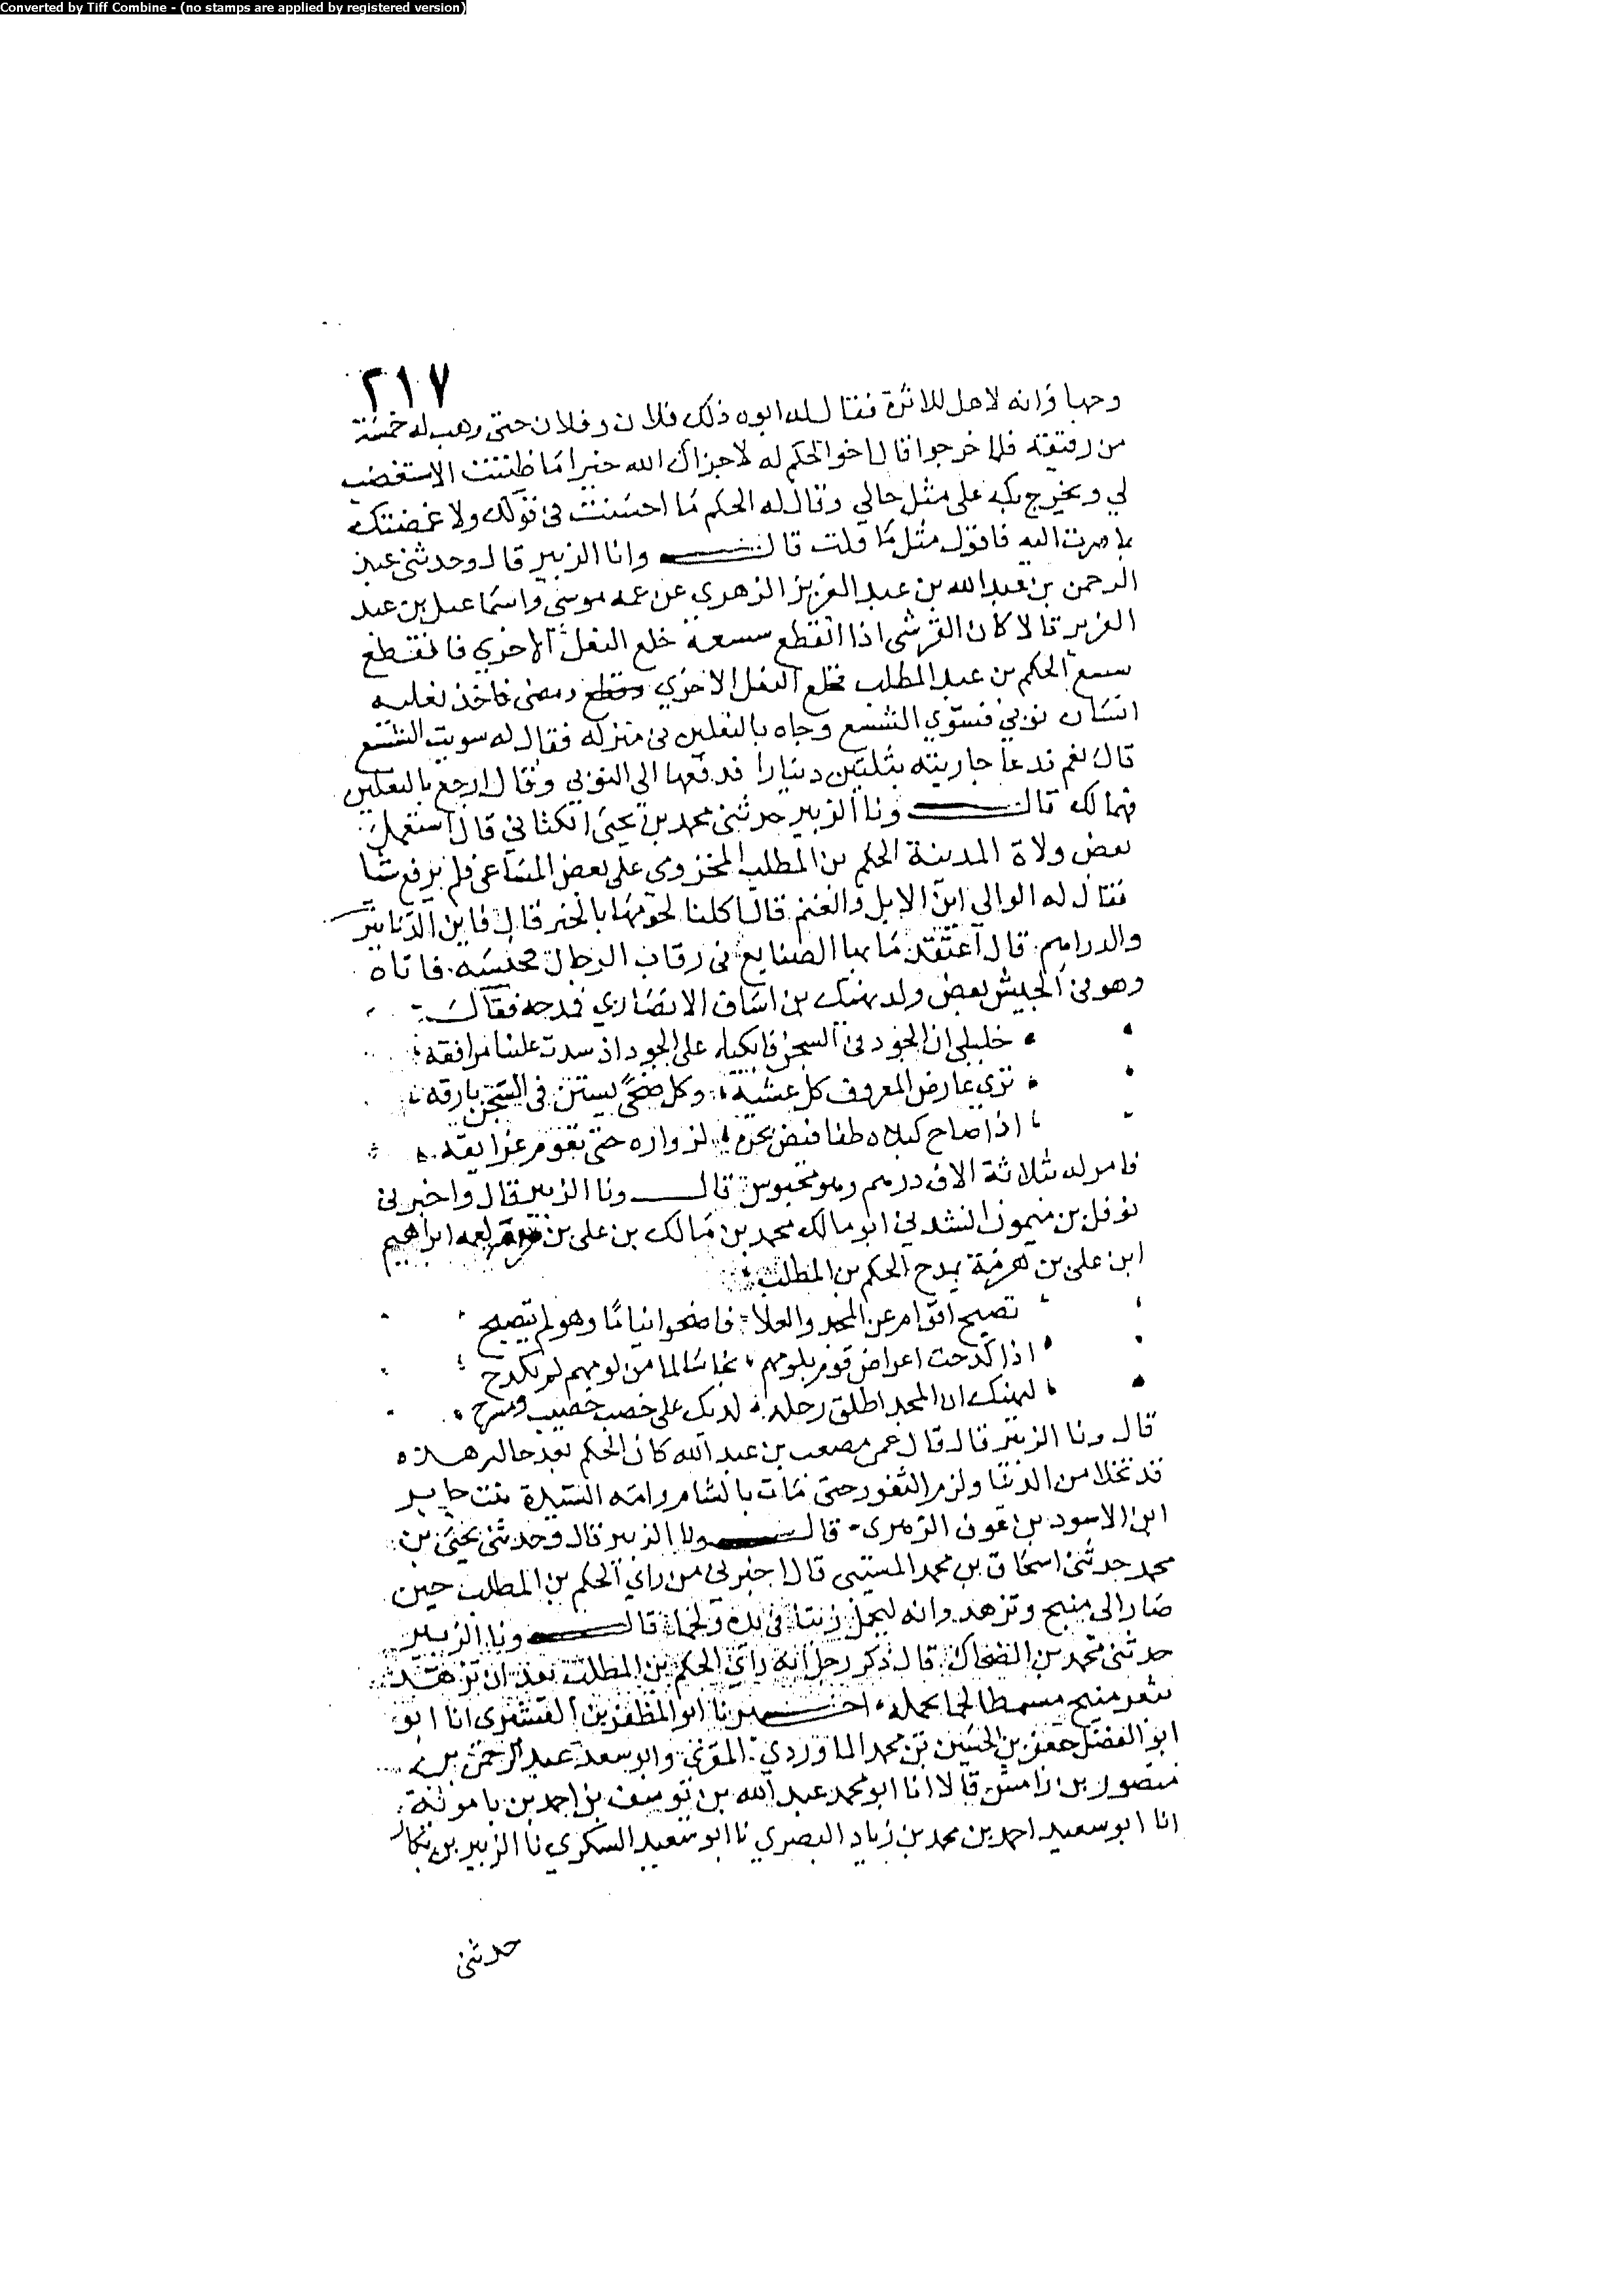 Converted by Tiff Combine - (no stamps are applied by registered version)
٢١٧
وحبا وانه لاهل للاثرة فقال له ابوه ذلك فلان وفلان حتى وهب له خمسة
من رقيقه فلما خرجوا قال اخو الحكم له لاجزاك الله خيرا ما ظننت الا ستغضب
لي ويخرج بك على مثل حالي وقال له الحكم ما احسنت في قولك ولا
بما صرت اليه فاقول مثل ما قلت قال وانا الزبير قال وحدثني عبد
الرحمن بن عبد الله بن عبد العزيز الزهري عن عمه موسى واسماعيل بن عبد
العزيز قالا كان القرشي اذا انقطع سسعه خلع النعل الاخري فانقطع
سسع الحكم بن عبد المطلب فخلع النعل الاخري ومضى فاخذ نعليه
انسان نوبي فسوي الشسع وجاه بالنعلين في منزله فقال له سويت الشسع
قال نعم فدعا جاريته بثلثين دينارا فدفعها الى النوبي وقال ارجع بالنعلين
فهما لك قال ونا الزبير حدثني محمد بن يحيى الكناني قال استعمل
بعض ولاة المدينة الحكم بن المطلب المخزومي على بعض المساعي فلم يرفع شيا
فقال له الوالي اين الابل والغنم قال اكلنا لحومها بالخبز قال فاين الدنانير
والدراهم قال اعتقدنا بها الصنايع في رقاب الرجال فحبسه فاتاه
وهو في الحبس بعض ولد نهيك بن اساف الانصاري فمدحه فقال
خليلي ان الجود في السجن فابكيا على الجود اذ سدت علينا مرافقه
تري عارض المعروف كل عشية وكل ضحى يستن في السجن بارقه
اذا صاح كبلاه طفا فيض بحره لزواره حتى تعوم غرايقه
فامر له بثلاثة الاف درهم وهو محبوس قال ونا الزبير قال واخبرني
نوفل بن ميمون انشدني ابو مالك محمد بن مالك بن علي بن هرمة لعمه ابراهيم
ابن علي بن هرمة يمدح الحكم بن المطلب
تصبح اقوام عن المجد والعلا فاضحوا نياما وهو لم يتصبح
اذا كدحت اعراض قوم بلومهم نجا سالما من لومهم لم تكدح
ليهنك ان المجد اطلق رحله لديك على خصب خصيب ومسرح
قال ونا الزبير قال قال عمي مصعب بن عبد الله كان الحكم بعد حاله هذه
قد تخلا من الدنيا ولزم الثغور حتى مات بالشام وامه السيدة بنت جابر
ابن الاسود بن عوف الزهري قال ونا الزبير قال وحدثني يحيى بن
محمد حدثني اسحاق بن محمد المسيبي قال اخبرني من راي الحكم بن المطلب حين
صار الى منبج وتزهد وانه ليحمل زيتا في يده ولحما قال ونا الزبير
حدثني محمد بن الضحاك قال ذكر رجل انه راي الحكم بن المطلب بعد ان تزهد
بثغر منبج مسمطا لحما يحمله اخبرنا ابو المظفر بن القشيري انا ابو
ابو الفضل جعفر بن الحسين بن محمد الماوردي المقري وابو سعد عبد الرحمن بن
منصور بن رامش قالا انا ابو محمد عبد الله بن يوسف بن احمد بن باموية
انا ابو سعيد احمد بن محمد بن زياد البصري نا ابو سعيد السكري نا الزبير بن بكار
حدثني